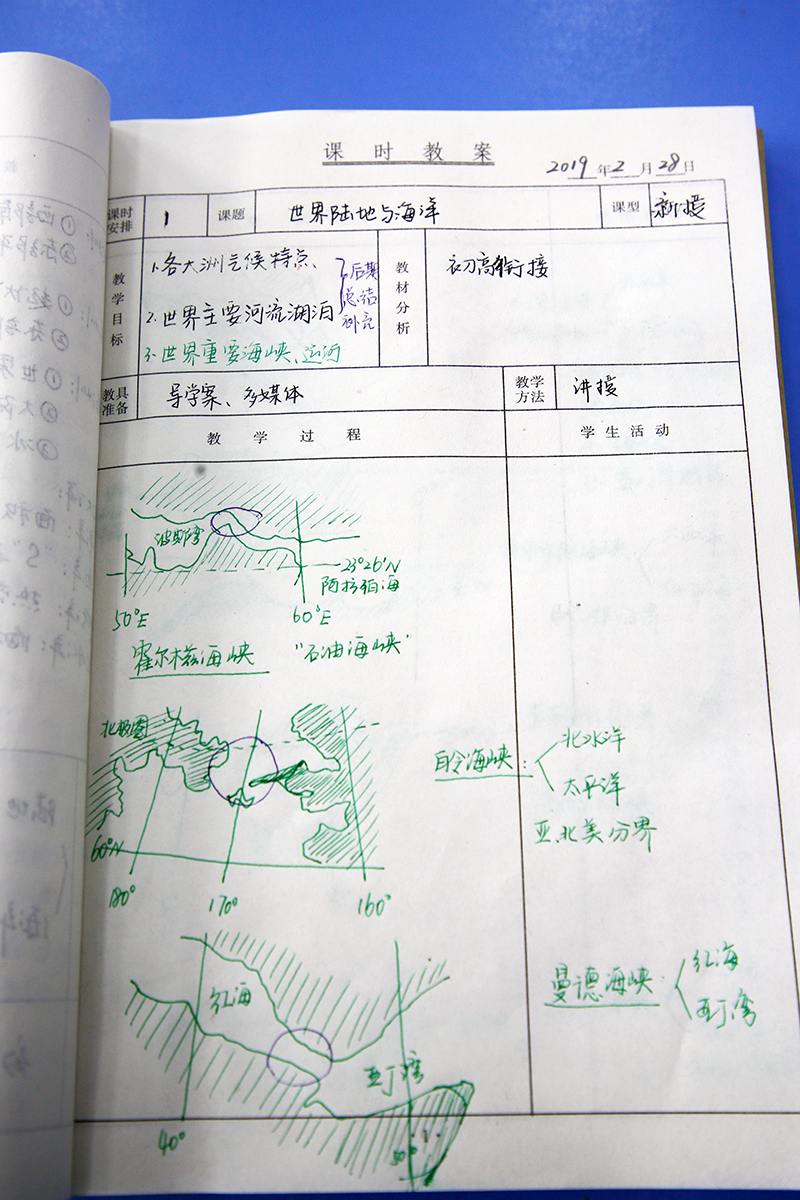 课时教案
2019年2月28日
课时安排 1 课题 世界陆地与海洋 课型 新授
教学目标
1.各大洲气候特点、
2.世界主要河流湖泊
后期总结补充
3.世界重要海峡、运河
教材分析
初高衔接
教具准备 导学案、多媒体 教学方法 讲授
教学过程 学生活动
波斯湾
23°26′N
阿拉伯海
50°E 60°E
霍尔木兹海峡 "石油海峡"
北极圈
60°N
180° 170° 160°
白令海峡:
北冰洋
太平洋
亚、北美分界
红海
亚丁湾
40° 50°
曼德海峡
红海
亚丁湾